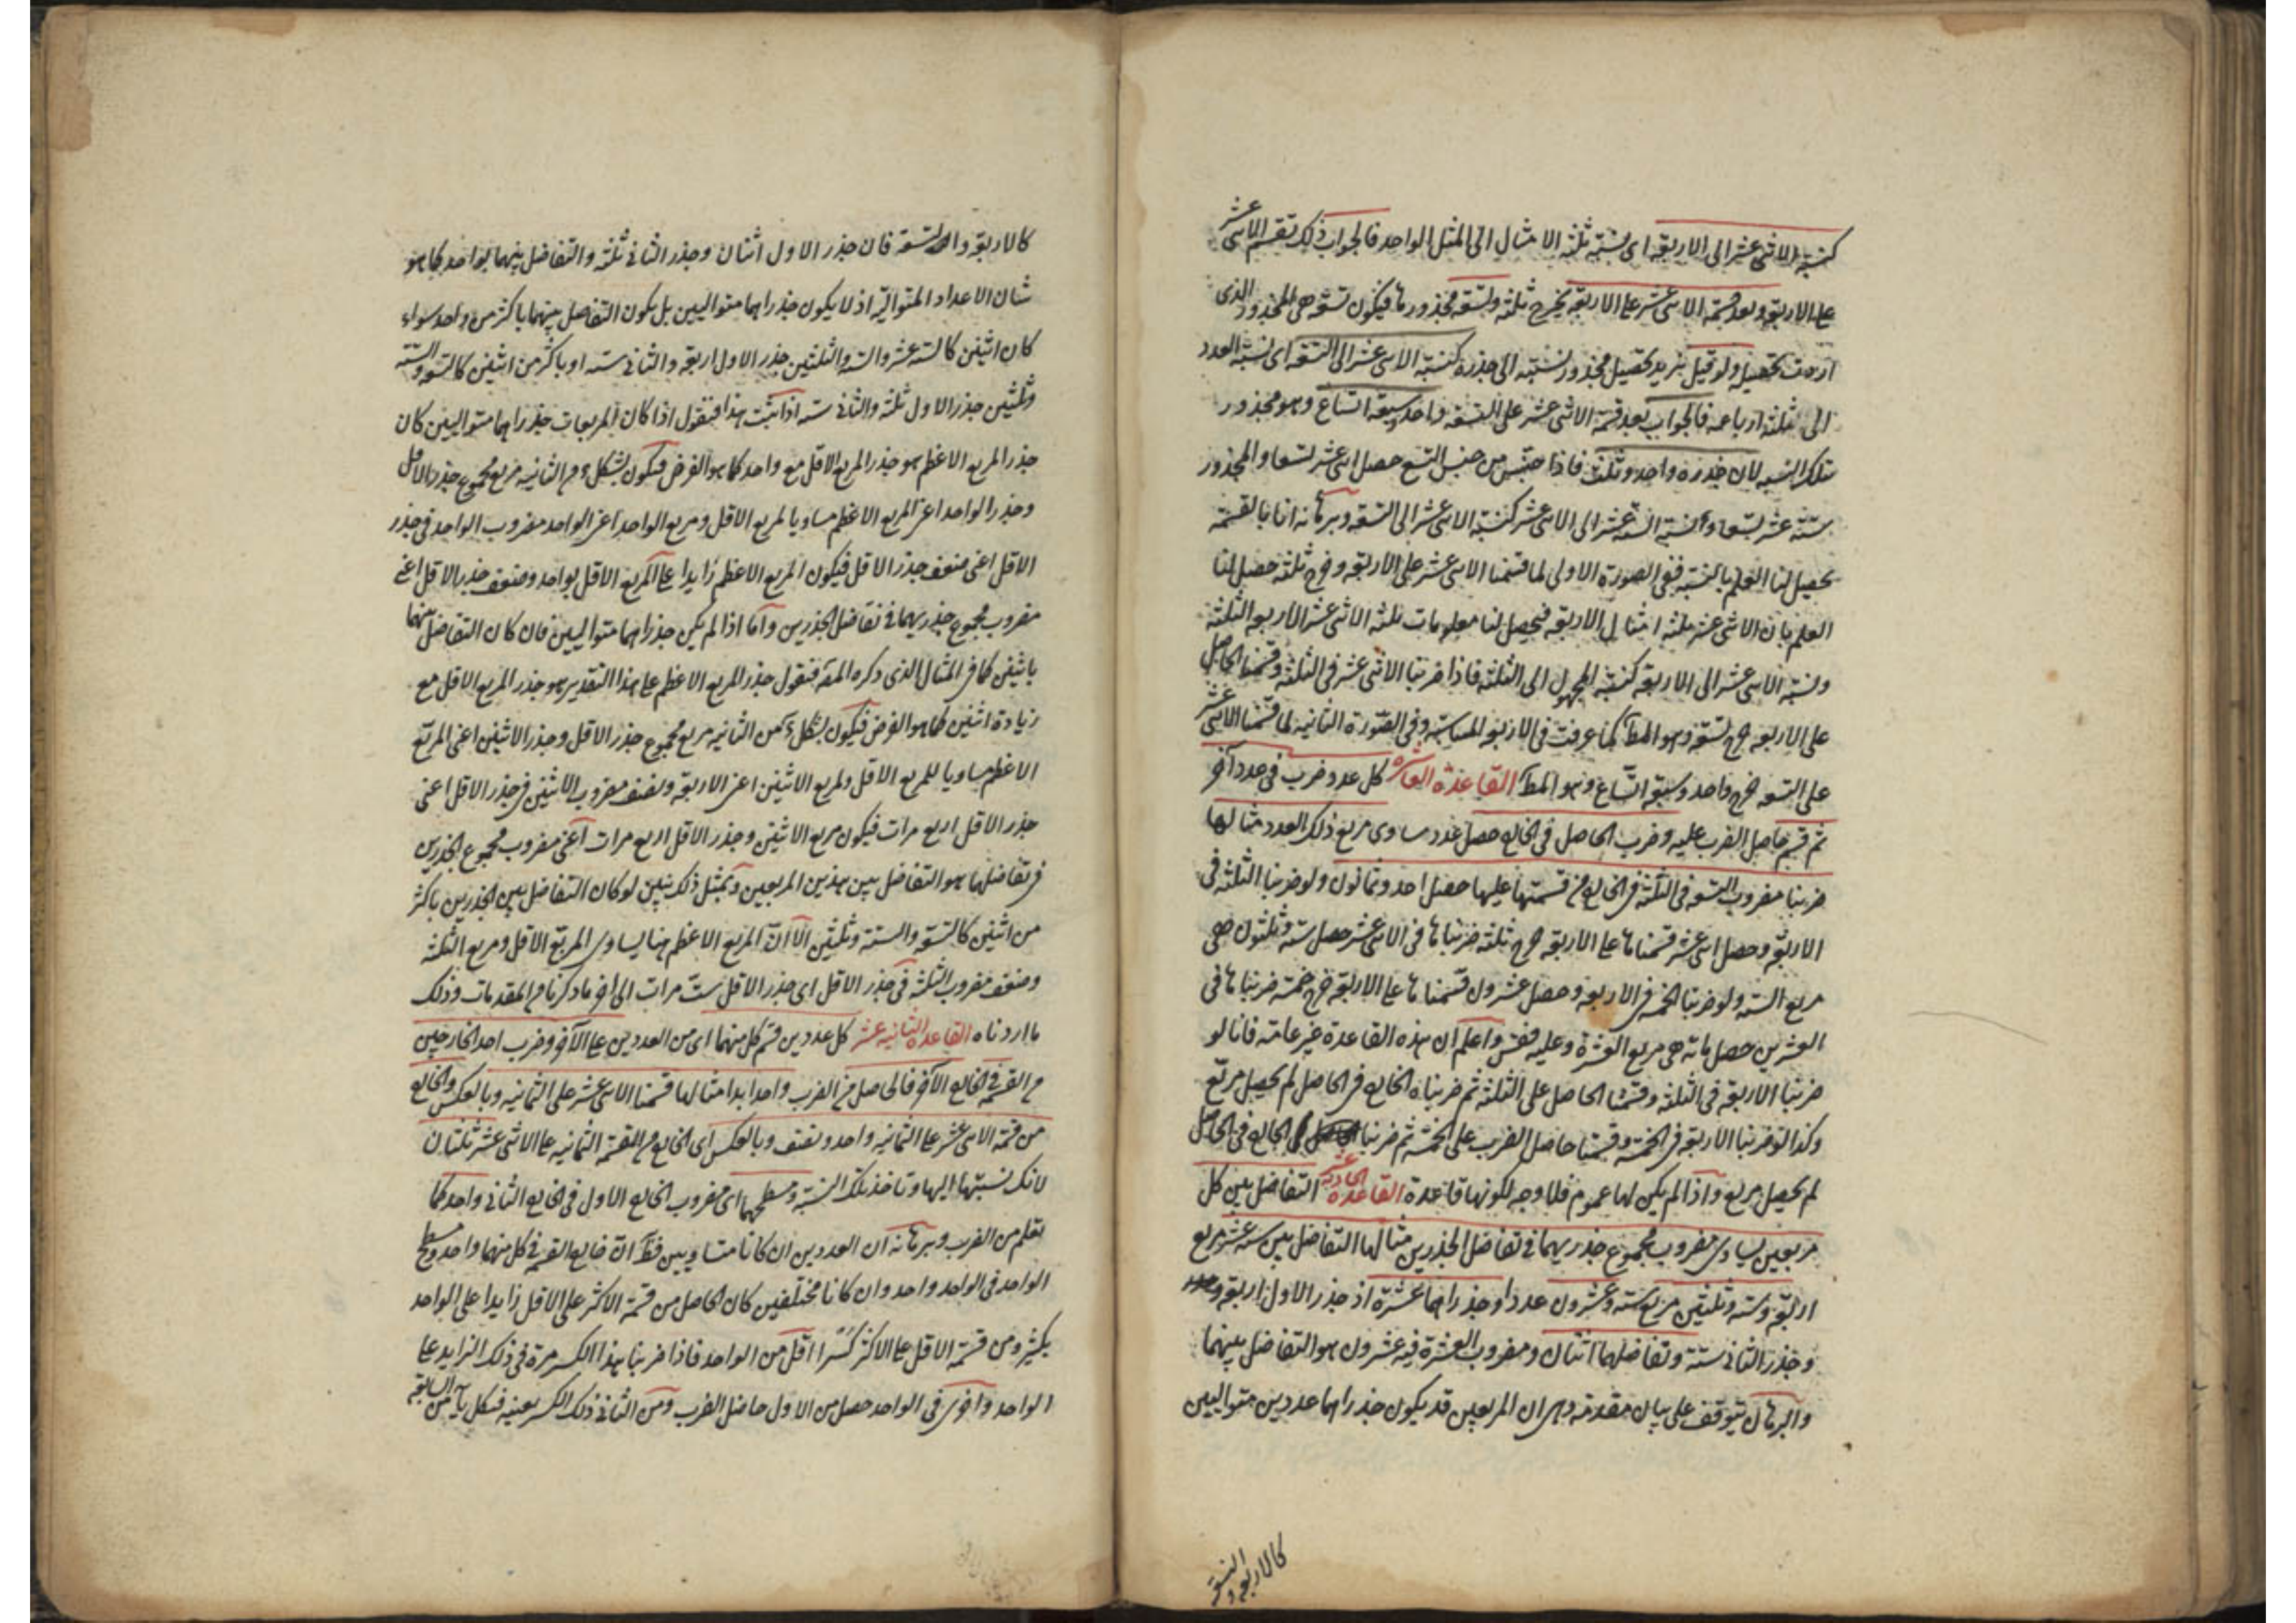 كنسبة الاثنى عشر الى الاربعة اى نسبة ثلثة الامثال الى المثل الواحد فالجواب ذلك تقسم الاثنى عشر
على الاربعة وبعد قسمة الاثنى عشر على الاربعة يخرج ثلثة وتسعة مجذورها فيكون تسعة هى المجذور الذى
اردت تحصيله ولو قيل نريد تحصيل مجذور نسبته الى جذره كنسبة الاثنى عشر الى التسعة اى نسبة العدد
الى ثلثة ارباعه فالجواب بعد قسمة الاثنى عشر على التسعة واحد وسبعة اتساع وهو مجذور
تلك النسبة لان جذره واحد وثلث فاذا جنس من جنس التسع حصل اثنى عشر تسعا والمجذور
ستة عشر تسعا ونسبة الستة عشر الى الاثنى عشر كنسبة الاثنى عشر الى التسعة وبرهانه انا بالقسمة
يحصل لنا العلم بالنسبة ففى الصورة الاولى لما قسمنا الاثنى عشر على الاربعة وخرج ثلثة حصل لنا
العلم بان الاثنى عشر ثلثة امثال الاربعة فيحصل لنا معلومات ثلثة الاثنى عشر الاربعة الثلثة
ونسبة الاثنى عشر الى الاربعة كنسبة المجهول الى الثلثة فاذا ضربنا الاثنى عشر فى الثلثة وقسمنا الحاصل
على الاربعة خرج تسعة وهو المط كما عرفت فى الاربعة المتناسبة وفى الصورة الثانية لما قسمنا الاثنى عشر
على التسعة خرج واحد وسبعة اتساع وهو المط القاعدة العاشرة كل عدد ضرب فى عدد آخر
ثم قسم حاصل الضرب عليه وضرب الحاصل فى الخارج حصل عدد يساوى مربع ذلك العدد مثالها
ضربنا مضروب التسعة فى الثلثة فى الخارج من قسمتها عليها حصل احد وثمانون ولو ضربنا الثلثة فى
الاربعة وحصل اثنى عشر قسمناها على الاربعة خرج ثلثة ضربناها فى الاثنى عشر حصل ستة وثلثون هى
مربع الستة ولو ضربنا الخمسة فى الاربعة وحصل عشرون قسمناها على الاربعة خرج خمسة ضربناها فى
العشرين حصل مائة هى مربع العشرة وعليه فقس واعلم ان هذه القاعدة غير عامة فانا لو
ضربنا الاربعة فى الثلثة وقسمنا الحاصل على الثلثة ثم ضربناه الخارج فى الحاصل لم يحصل مربع
وكذا لو ضربنا الاربعة فى الخمسة وقسمنا حاصل الضرب على الخمسة ثم ضربنا الخارج فى الحاصل
لم يحصل مربع واذا لم يكن لها عموم فلا وجه لكونها قاعدة القاعدة الحادية عشر التفاضل بين كل
مربعين يساوى مضروب مجموع جذريهما فى تفاضل الجذرين مثالها التفاضل بين ستة عشر مربع
اربعة وستة وثلثين مربع ستة وعشرون عددا وجذراهما عشرة اذ جذر الاول اربعة
وجذر الثانى ستة وتفاضلهما اثنان ومضروب العشرة فيه عشرون هو التفاضل بينهما
والبرهان يتوقف على بيان مقدمة وهى ان المربعين قد يكون جذراهما عددين متواليين
كالاربعة والتسعة
كالاربعة والتسعة فان جذر الاول اثنان وجذر الثانى ثلثة والتفاضل بينهما بواحد كما هو
شان الاعداد المتوالية اذ لا يكون جذراهما متواليين بل يكون التفاضل بينهما باكثر من واحد سواء
كان اثنين كالستة عشر والستة والثلثين جذر الاول اربعة والثانى ستة او باكثر من اثنين كالتسعة والستة
وثلثين جذر الاول ثلثة والثانى ستة اذا ثبت هذا فنقول اذا كان المربعات جذراهما متواليين كان
جذر المربع الاعظم هو جذر المربع الاقل مع واحد كما هو الفرض فيكون بشكل من الثانية مربع مجموع جذر الاقل
وجذر الواحد اعنى المربع الاعظم مساويا لمربع الاقل ومربع الواحد اعنى الواحد مضروب الواحد فى جذر
الاقل اعنى ضعف جذر الاقل فيكون المربع الاعظم زايدا على المربع الاقل بواحد وضعف جذر الاقل اعنى
مضروب مجموع جذريهما فى تفاضل الجذرين واما اذا لم يكن جذراهما متواليين فان كان التفاضل بينهما
باثنين كما فى المثال الذى ذكره المص فنقول جذر المربع الاعظم على هذا التقدير هو جذر المربع الاقل مع
زيادة اثنين كما هو الفرض فيكون بشكل من الثانية مربع مجموع جذر الاقل وجذر الاثنين اعنى المربع
الاعظم مساويا للمربع الاقل ولمربع الاثنين اعنى الاربعة وضعف مضروب الاثنين فى جذر الاقل اعنى
جذر الاقل اربع مرات فيكون مربع الاثنين وجذر الاقل اربع مرات اعنى مضروب مجموع الجذرين
فى تفاضلهما هو التفاضل بين هذين المربعين وبمثل ذلك نبين لو كان التفاضل بين الجذرين باكثر
من اثنين كالتسعة والستة وثلثين الا ان المربع الاعظم هنا يساوى المربع الاقل ومربع الثلثة
وضعف مضروب الثلثة فى جذر الاقل اى جذر الاقل ست مرات الى اخر ما ذكرنا من المقدمات وذلك
ما اردناه القاعدة الثانية عشر كل عددين قسم كل منهما اى من العددين على الآخر وضرب احد الخارجين
من القسمة فى الخارج الآخر فالحاصل من الضرب واحد ابدا مثالها قسمنا الاثنى عشر على الثمانية وبالعكس والخارج
من قسمة الاثنى عشر على الثمانية واحد ونصف وبالعكس اى الخارج من القسمة الثمانية على الاثنى عشر ثلثان
لانك نسبتها اليها وتاخذ تلك النسبة ومسطحهما اى مضروب الخارج الاول فى الخارج الثانى واحد كما
تعلم من الضرب وبرهانه ان العددين ان كانا متساويين فظ ان خارج القسمة فى كل منهما واحد ومسطح
الواحد فى الواحد واحد وان كانا مختلفين كان الحاصل من قسمة الاكثر على الاقل زايدا على الواحد
بكثير ومن قسمة الاقل على الاكثر كسرا اقل من الواحد فاذا ضربنا هذا الكسر مرة فى ذلك الزايد على
الواحد واخرى فى الواحد حصل من الاول حاصل الضرب ومن الثانى ذلك الكسر بعينه فبشكل من السابعة